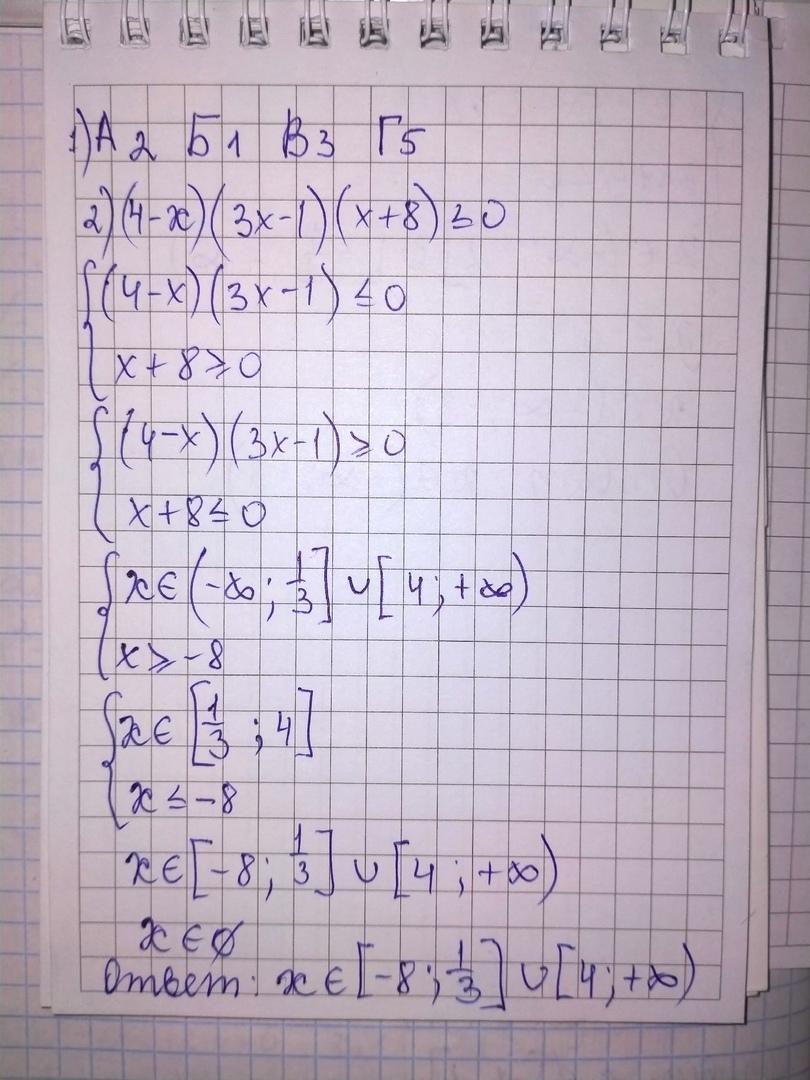 1) А 2 Б 1 В 3 Г 5
2) (4-x)(3x-1)(x+8) ≤ 0
{(4-x)(3x-1) ≤ 0
x+8 ≥ 0
{(4-x)(3x-1) ≥ 0
x+8 ≤ 0
{x ∈ (-∞; 1/3] ∪ [4; +∞)
x ≥ -8
{x ∈ [1/3; 4]
x ≤ -8
x ∈ [-8; 1/3] ∪ [4; +∞)
x ∈ ∅
Ответ: x ∈ [-8; 1/3] ∪ [4; +∞)